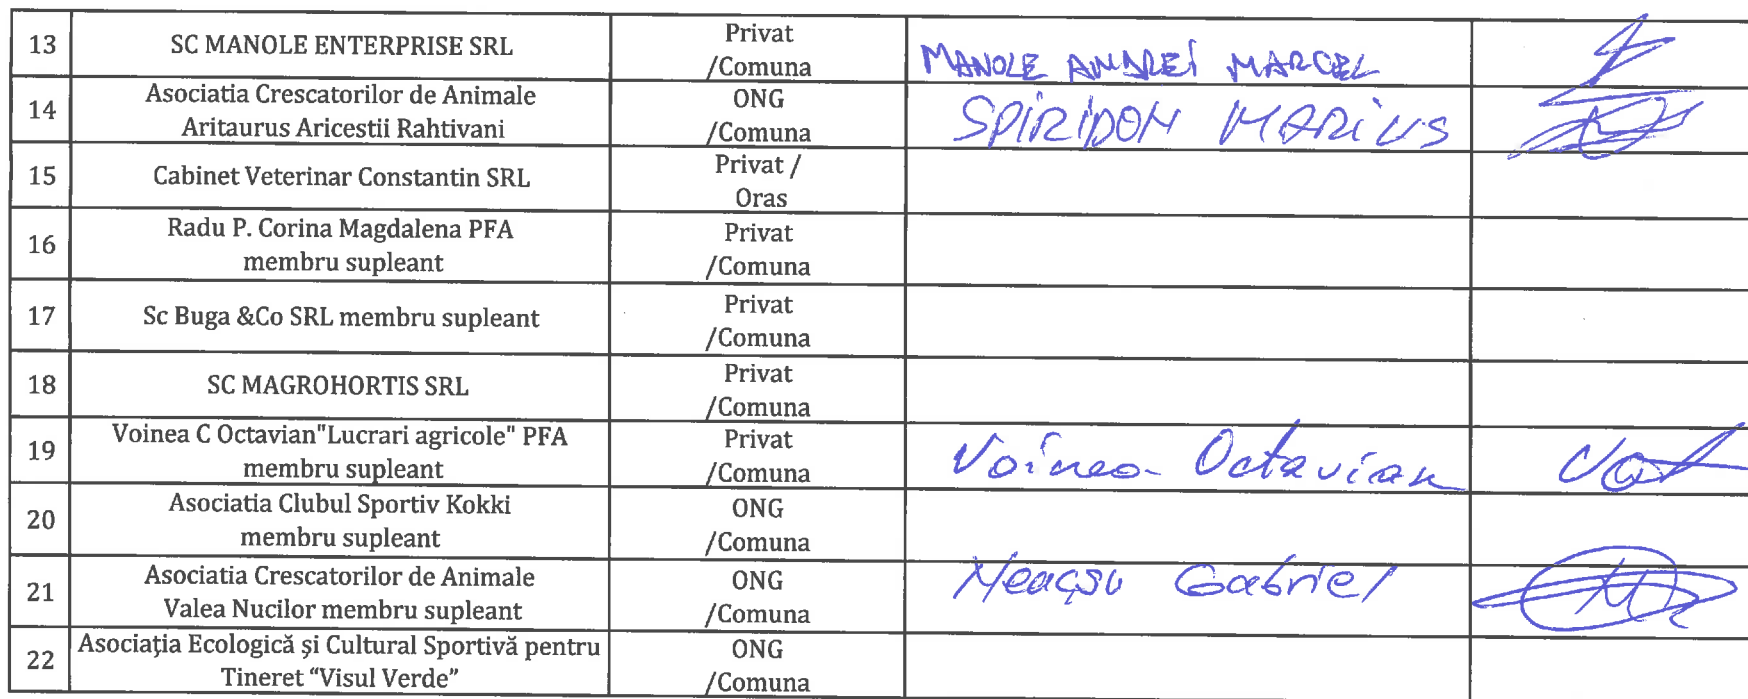 13 SC MANOLE ENTERPRISE SRL Privat /Comuna MANOLE ANDREI MARCEL
14 Asociatia Crescatorilor de Animale Aritaurus Aricestii Rahtivani ONG /Comuna SPIRIDON MARIUS
15 Cabinet Veterinar Constantin SRL Privat / Oras
16 Radu P. Corina Magdalena PFA membru supleant Privat /Comuna
17 Sc Buga &Co SRL membru supleant Privat /Comuna
18 SC MAGROHORTIS SRL Privat /Comuna
19 Voinea C Octavian"Lucrari agricole" PFA membru supleant Privat /Comuna Voinea Octavian
20 Asociatia Clubul Sportiv Kokki membru supleant ONG /Comuna
21 Asociatia Crescatorilor de Animale Valea Nucilor membru supleant ONG /Comuna Gabriel
22 Asociaţia Ecologică şi Cultural Sportivă pentru Tineret “Visul Verde” ONG /Comuna